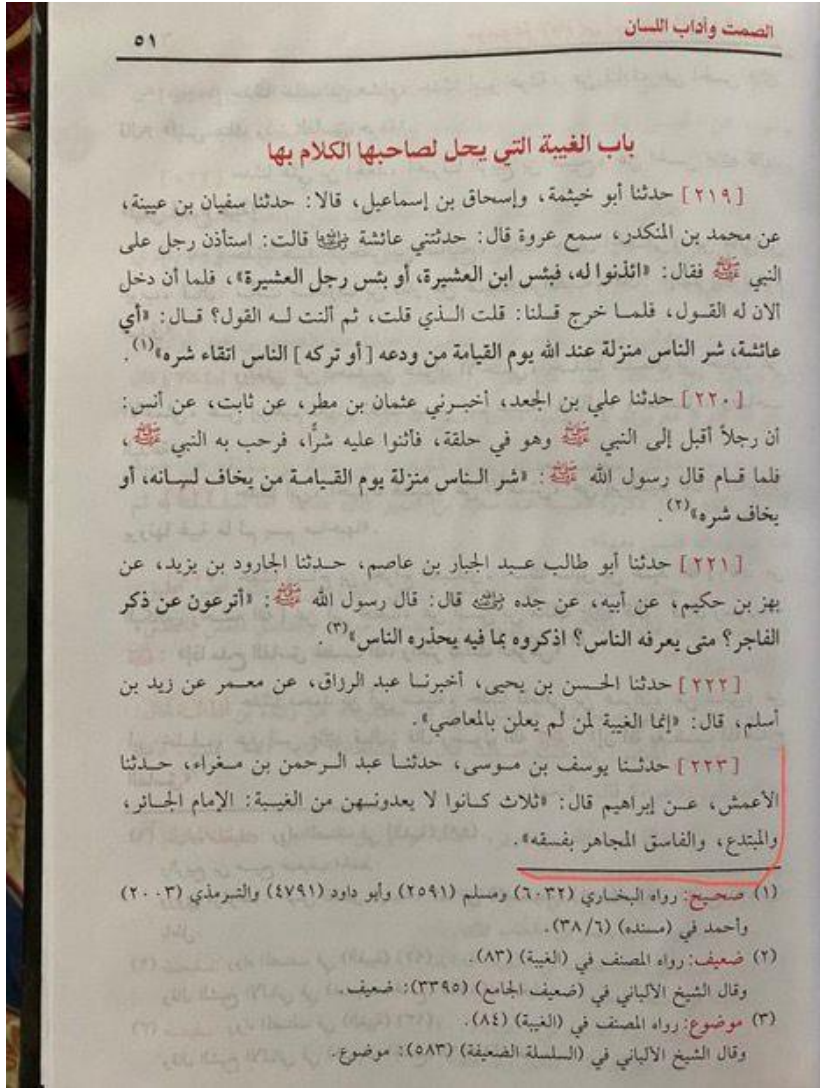 الصمت وآداب اللسان
٥١
باب الغيبة التي يحل لصاحبها الكلام بها
[٢١٩] حدثنا أبو خيثمة، وإسحاق بن إسماعيل، قالا: حدثنا سفيان بن عيينة،
عن محمد بن المنكدر، سمع عروة قال: حدثتني عائشة رضي الله عنها قالت: استأذن رجل على
النبي ﷺ فقال: «ائذنوا له، فبئس ابن العشيرة، أو بئس رجل العشيرة»، فلما أن دخل
ألان له القول، فلما خرج قلنا: قلت الذي قلت، ثم ألنت له القول؟ قال: «أي
عائشة، شر الناس منزلة عند الله يوم القيامة من ودعه [أو تركه] الناس اتقاء شره»(١).
[٢٢٠] حدثنا علي بن الجعد، أخبرني عثمان بن مطر، عن ثابت، عن أنس:
أن رجلاً أقبل إلى النبي ﷺ وهو في حلقة، فأثنوا عليه شرًّا، فرحب به النبي ﷺ،
فلما قام قال رسول الله ﷺ: «شر الناس منزلة يوم القيامة من يخاف لسانه، أو
يخاف شره»(٢).
[٢٢١] حدثنا أبو طالب عبد الجبار بن عاصم، حدثنا الجارود بن يزيد، عن
بهز بن حكيم، عن أبيه، عن جده رضي الله عنه قال: قال رسول الله ﷺ: «أترعون عن ذكر
الفاجر؟ متى يعرفه الناس؟ اذكروه بما فيه يحذره الناس»(٣).
[٢٢٢] حدثنا الحسن بن يحيى، أخبرنا عبد الرزاق، عن معمر عن زيد بن
أسلم، قال: «إنما الغيبة لمن لم يعلن بالمعاصي».
[٢٢٣] حدثنا يوسف بن موسى، حدثنا عبد الرحمن بن مغراء، حدثنا
الأعمش، عن إبراهيم قال: «ثلاث كانوا لا يعدونهن من الغيبة: الإمام الجائر،
والمبتدع، والفاسق المجاهر بفسقه».
(١) صحيح: رواه البخاري (٦٠٣٢) ومسلم (٢٥٩١) وأبو داود (٤٧٩١) والترمذي (٢٠٠٣)
وأحمد في (مسنده) (٣٨/٦).
(٢) ضعيف: رواه المصنف في (الغيبة) (٨٣).
وقال الشيخ الألباني في (ضعيف الجامع) (٣٣٩٥): ضعيف.
(٣) موضوع: رواه المصنف في (الغيبة) (٨٤).
وقال الشيخ الألباني في (السلسلة الضعيفة) (٥٨٣): موضوع.